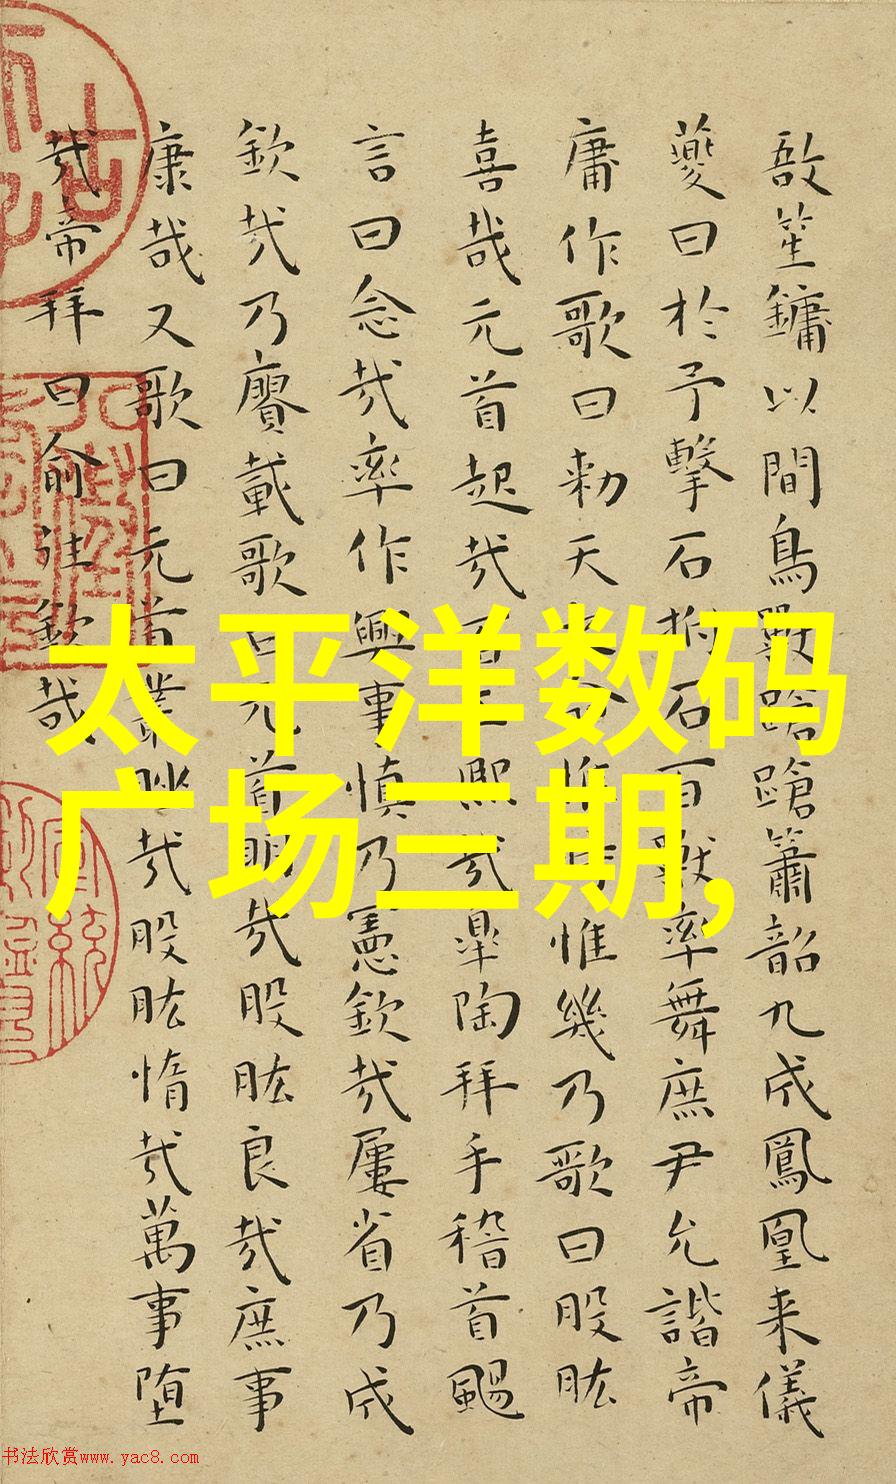 敔笙鏞以間鳥獸蹌蹌簫韶九成鳳凰来儀
夔曰於予擊石拊石百獸率舞庶尹允諧帝
庸作歌曰勑天之命惟時惟幾乃歌曰股肱
喜哉元首起哉百工熙哉皋陶拜手稽首颺
言曰念哉率作興事慎乃憲欽哉屢省乃成
欽哉乃賡載歌曰元首明哉股肱良哉庶事
康哉又歌曰元首叢脞哉股肱惰哉萬事堕
哉帝拜曰俞往欽哉
太平洋数码
广场三期,
书法欣赏www.yac8.com